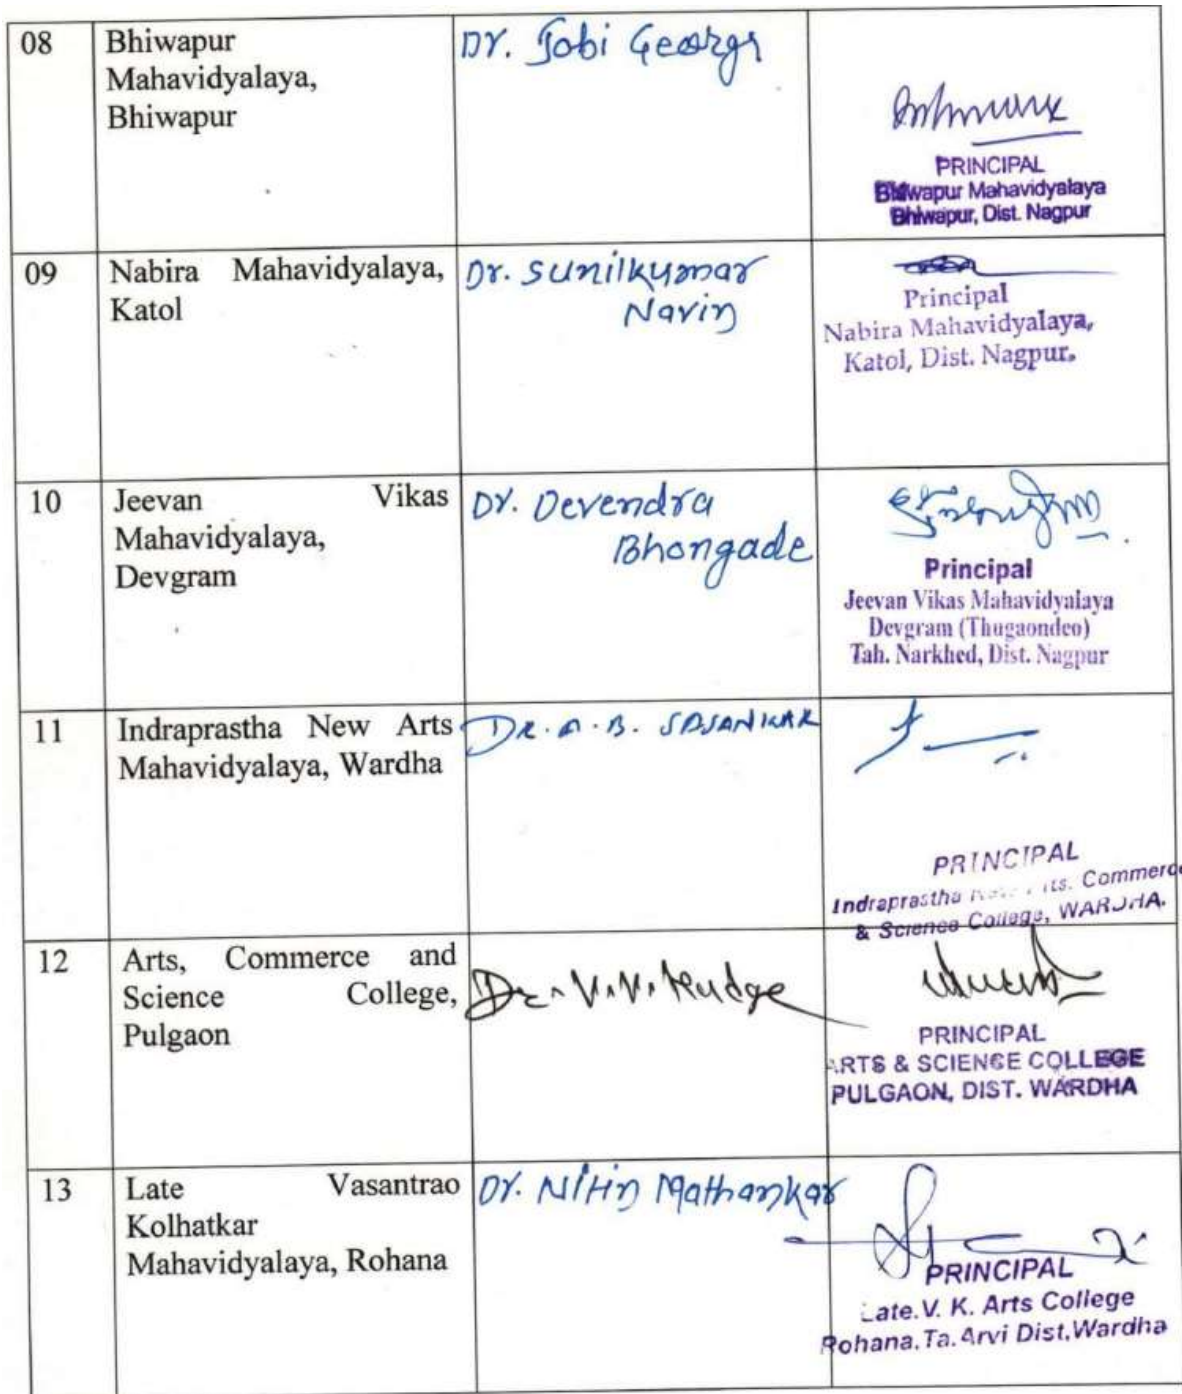 08
Bhiwapur
Mahavidyalaya,
Bhiwapur
Dr. Jobi George
PRINCIPAL
Bhiwapur Mahavidyalaya
Bhiwapur, Dist. Nagpur
09
Nabira Mahavidyalaya,
Katol
Dr. Sunilkumar
Navin
Principal
Nabira Mahavidyalaya,
Katol, Dist. Nagpur.
10
Jeevan Vikas
Mahavidyalaya,
Devgram
Dr. Devendra
Bhongade
Principal
Jeevan Vikas Mahavidyalaya
Devgram (Thugaondeo)
Tah. Narkhed, Dist. Nagpur
11
Indraprastha New Arts
Mahavidyalaya, Wardha
DR. A. B. SASANKAR
PRINCIPAL
Indraprastha New Arts. Commerce
& Science College, WARDHA.
12
Arts, Commerce and
Science College,
Pulgaon
Dr. V. V.
PRINCIPAL
ARTS & SCIENCE COLLEGE
PULGAON, DIST. WARDHA
13
Late Vasantrao
Kolhatkar
Mahavidyalaya, Rohana
Dr. Nitin Mathankar
PRINCIPAL
Late.V. K. Arts College
Rohana.Ta.Arvi Dist.Wardha